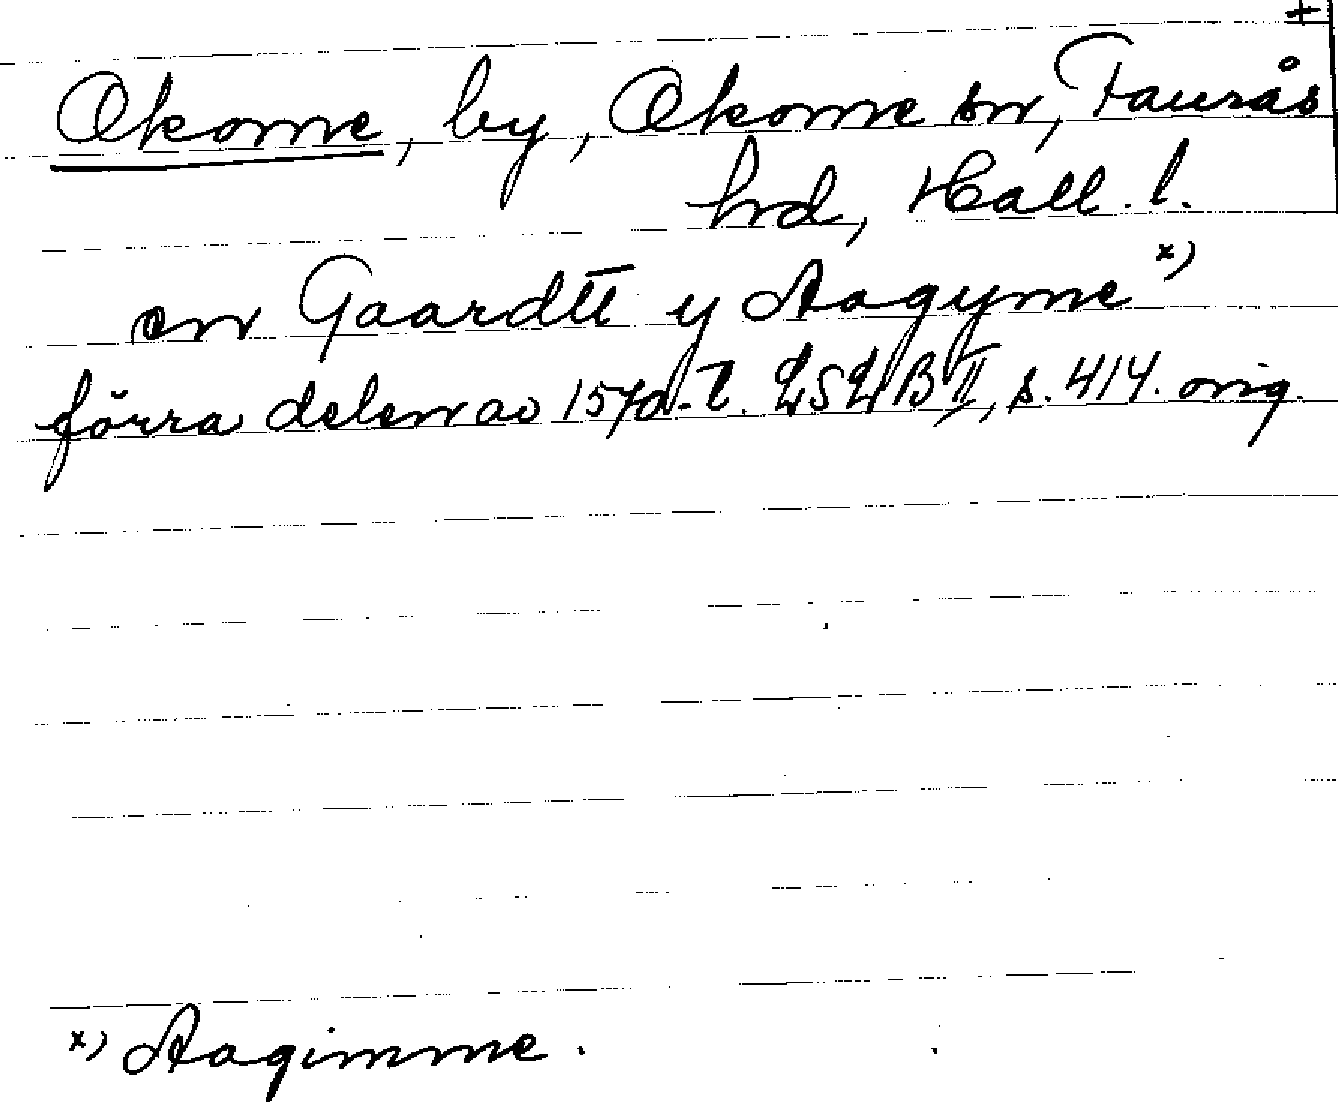 +
Okome, by, Okome sn, Faurås
hrd, Hall. l.
en Gaardtt y Aagyme x)
förra delen av 1570-t. LSLB II, s. 414. orig.
x) Aagimme.